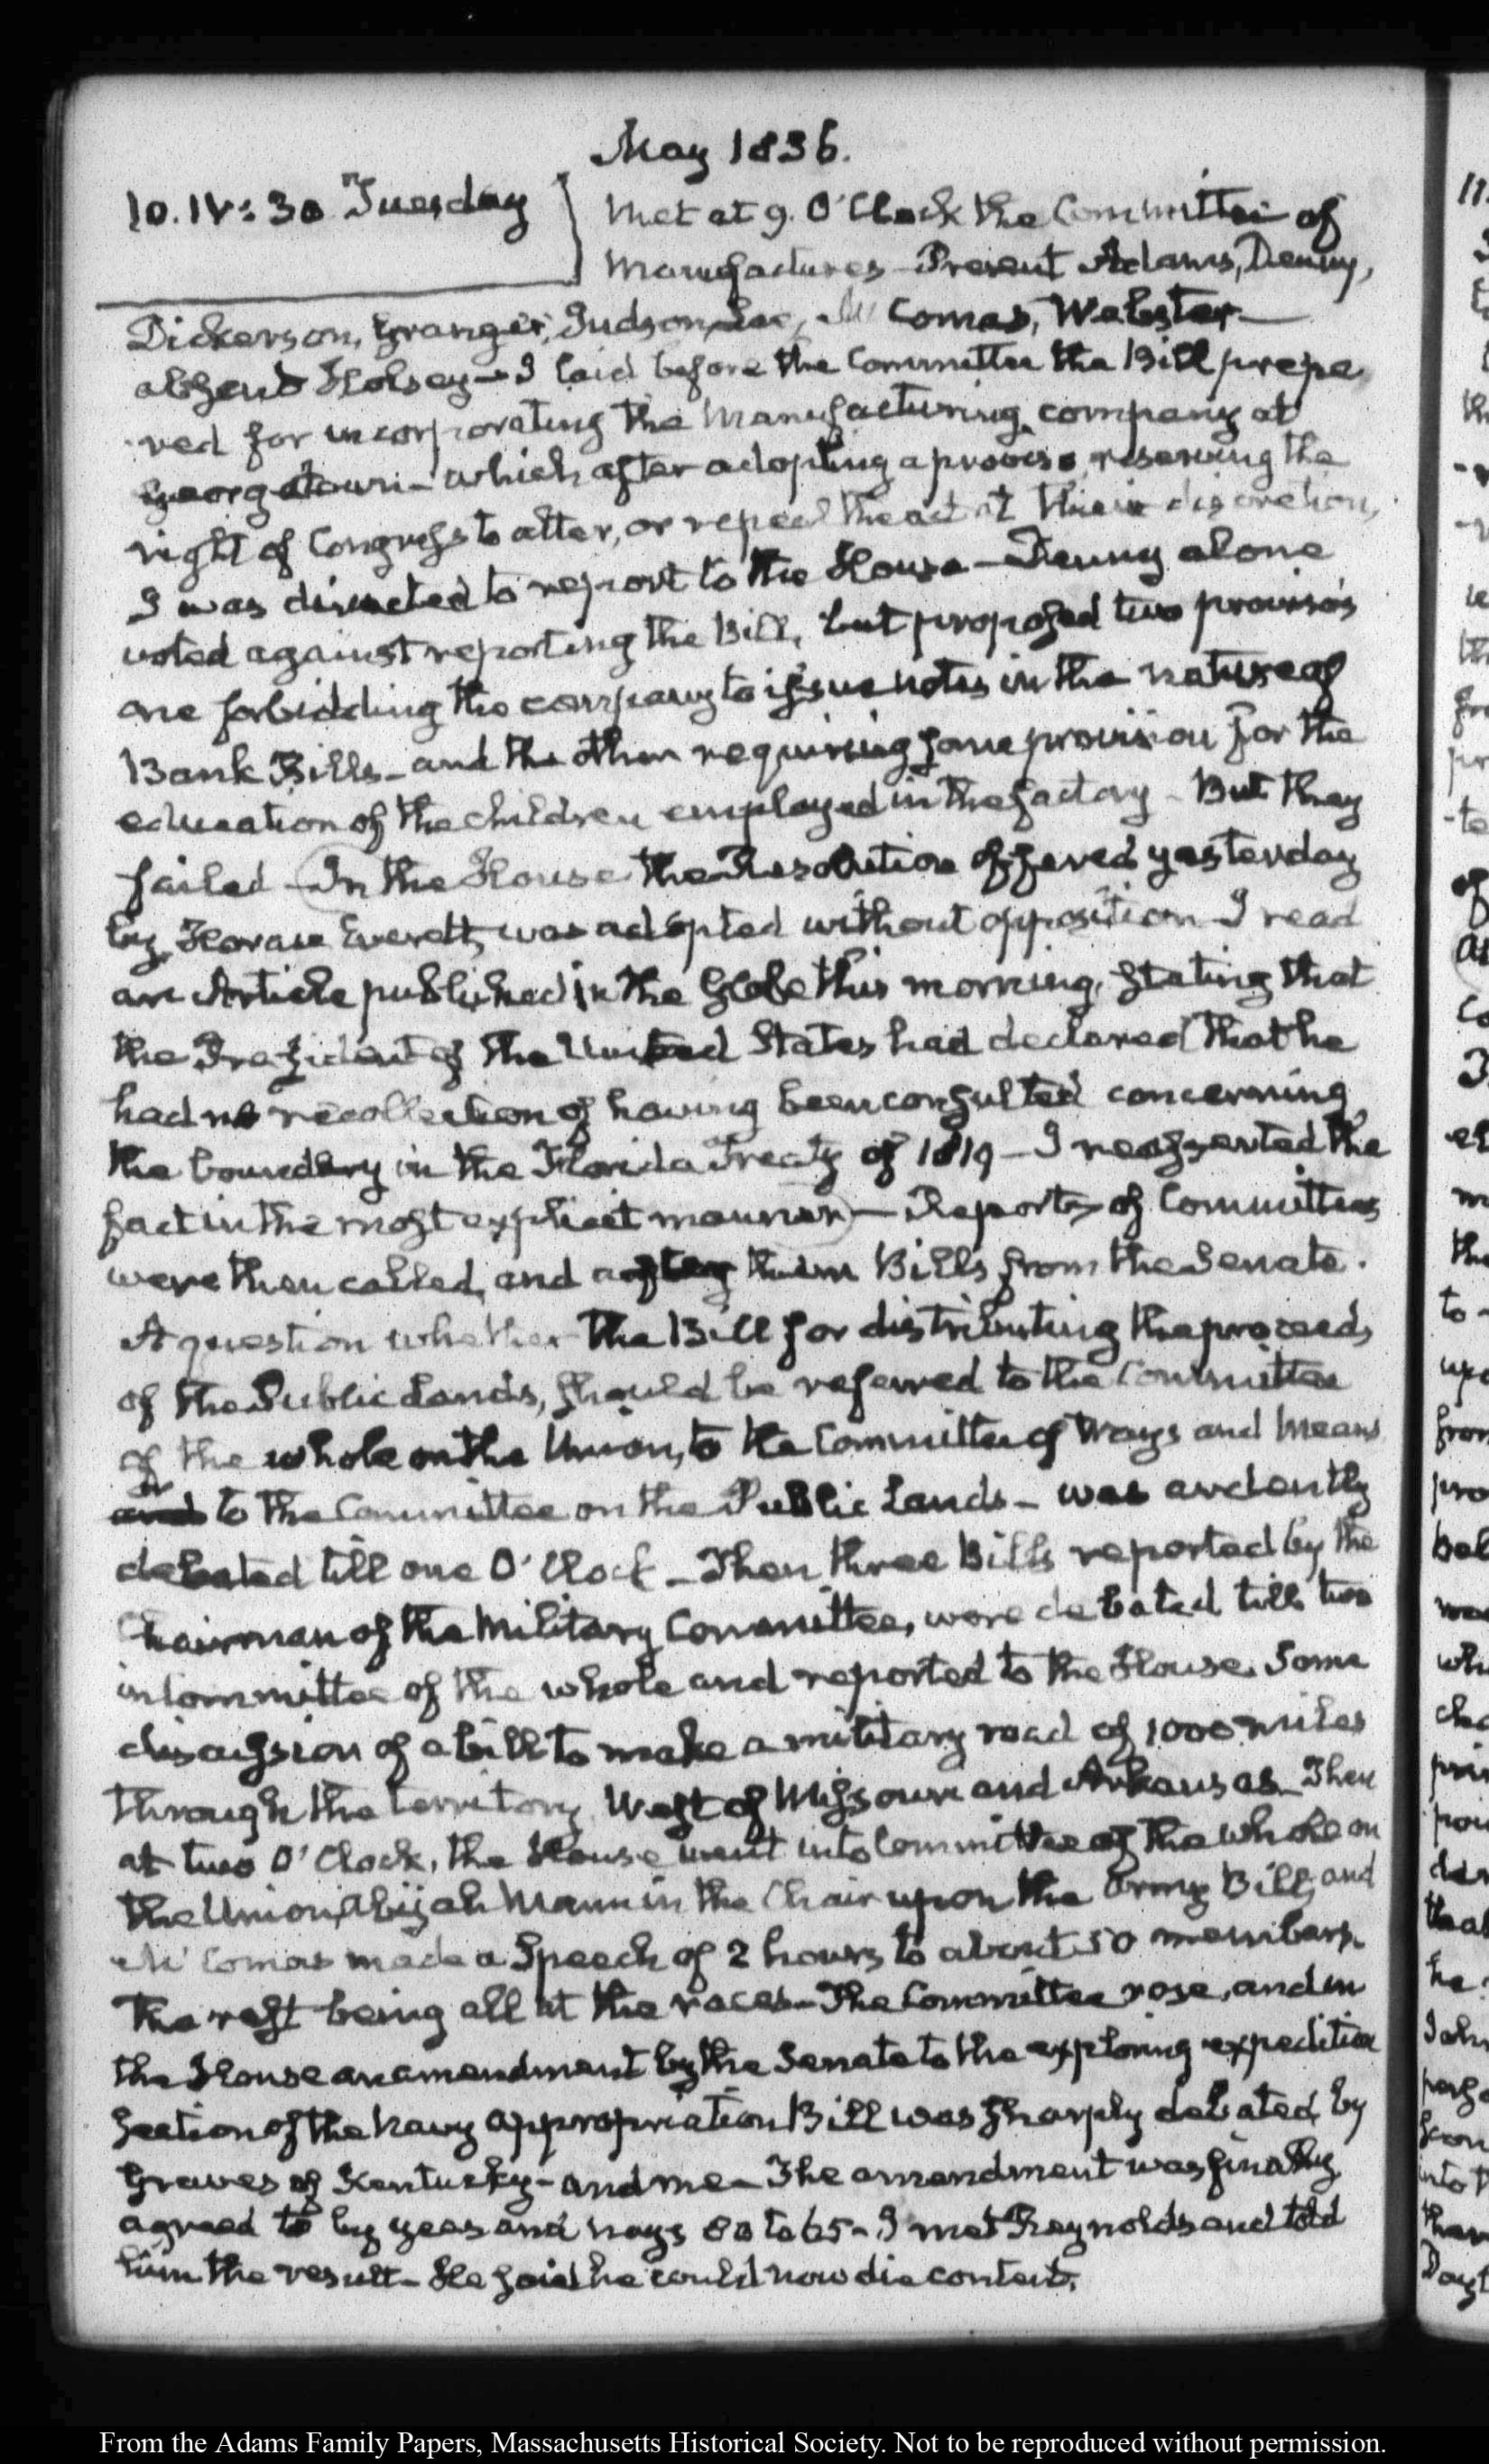 May 1836.
10. IV: 30 Tuesday
Met at 9. O'Clock the Committee of
Manufactures – Present Adams, Denny,
Dickerson, Granger, Judson, Lee, McComas, Webster –
absent Halsey – I laid before the Committee the Bill prepa
-red for incorporating the Manufacturing company at
Georgetown – which after adopting a proviso reserving the
right of Congress to alter, or repeal the act at their discretion,
I was directed to report to the House – Denny alone
voted against reporting the Bill, but proposed two proviso's
one forbidding the company to issue notes in the nature of
Bank Bills – and the other requiring some provision for the
education of the children employed in the factory – But they
failed – In the House the Resolution offered yesterday
by Horace Everett, was adopted without opposition – I read
an Article published in the Globe this morning, stating that
the President of the United States had declared that he
had no recollection of having been consulted concerning
the boundary in the Florida Treaty of 1819 – I reasserted the
fact in the most explicit manner – Reports of Committees
were then called, and after them Bills from the Senate.
A question whether the Bill for distributing the proceeds
of the Public Lands, should be referred to the Committee
of the whole on the Union, to the Committee of Ways and Means
or
and to the Committee on the Public Lands – was ardently
debated till one O'Clock – Then three Bills reported by the
Chairman of the Military Committee, were debated till two
in Committee of the whole and reported to the House. Some
discussion of a bill to make a military road of 1000 miles
through the territory West of Missouri and Arkansas – Then
at two O'Clock, the House went into Committee of the whole on
the Union, Abijah Mann in the Chair upon the Army Bill, and
McComas made a Speech of 2 hours to about 50 members.
The rest being all at the races – The Committee rose, and in
the House an amendment by the Senate to the exploring expedition
section of the Navy appropriation Bill was sharply debated, by
Graves of Kentucky – and me – The amendment was finally
agreed to by yeas and nays 80 to 65 – I met Reynolds and told
him the result – He said he could now die content.
From the Adams Family Papers, Massachusetts Historical Society. Not to be reproduced without permission.